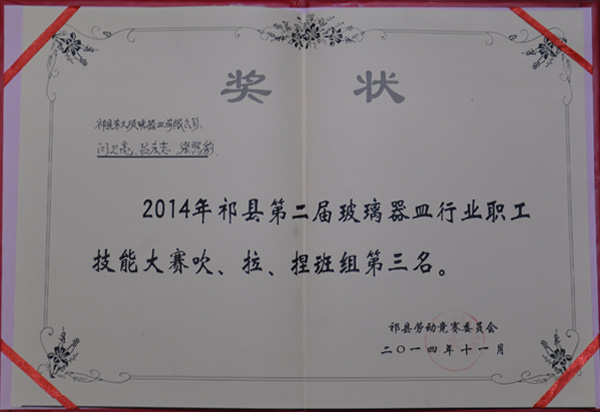 奖 状
祁县荣大玻璃器皿有限公司:
闫卫亮、吕东志、梁照豹
2014年祁县第二届玻璃器皿行业职工
技能大赛吹、拉、捏班组第三名。
祁县劳动竞赛委员会
二〇一四年十一月